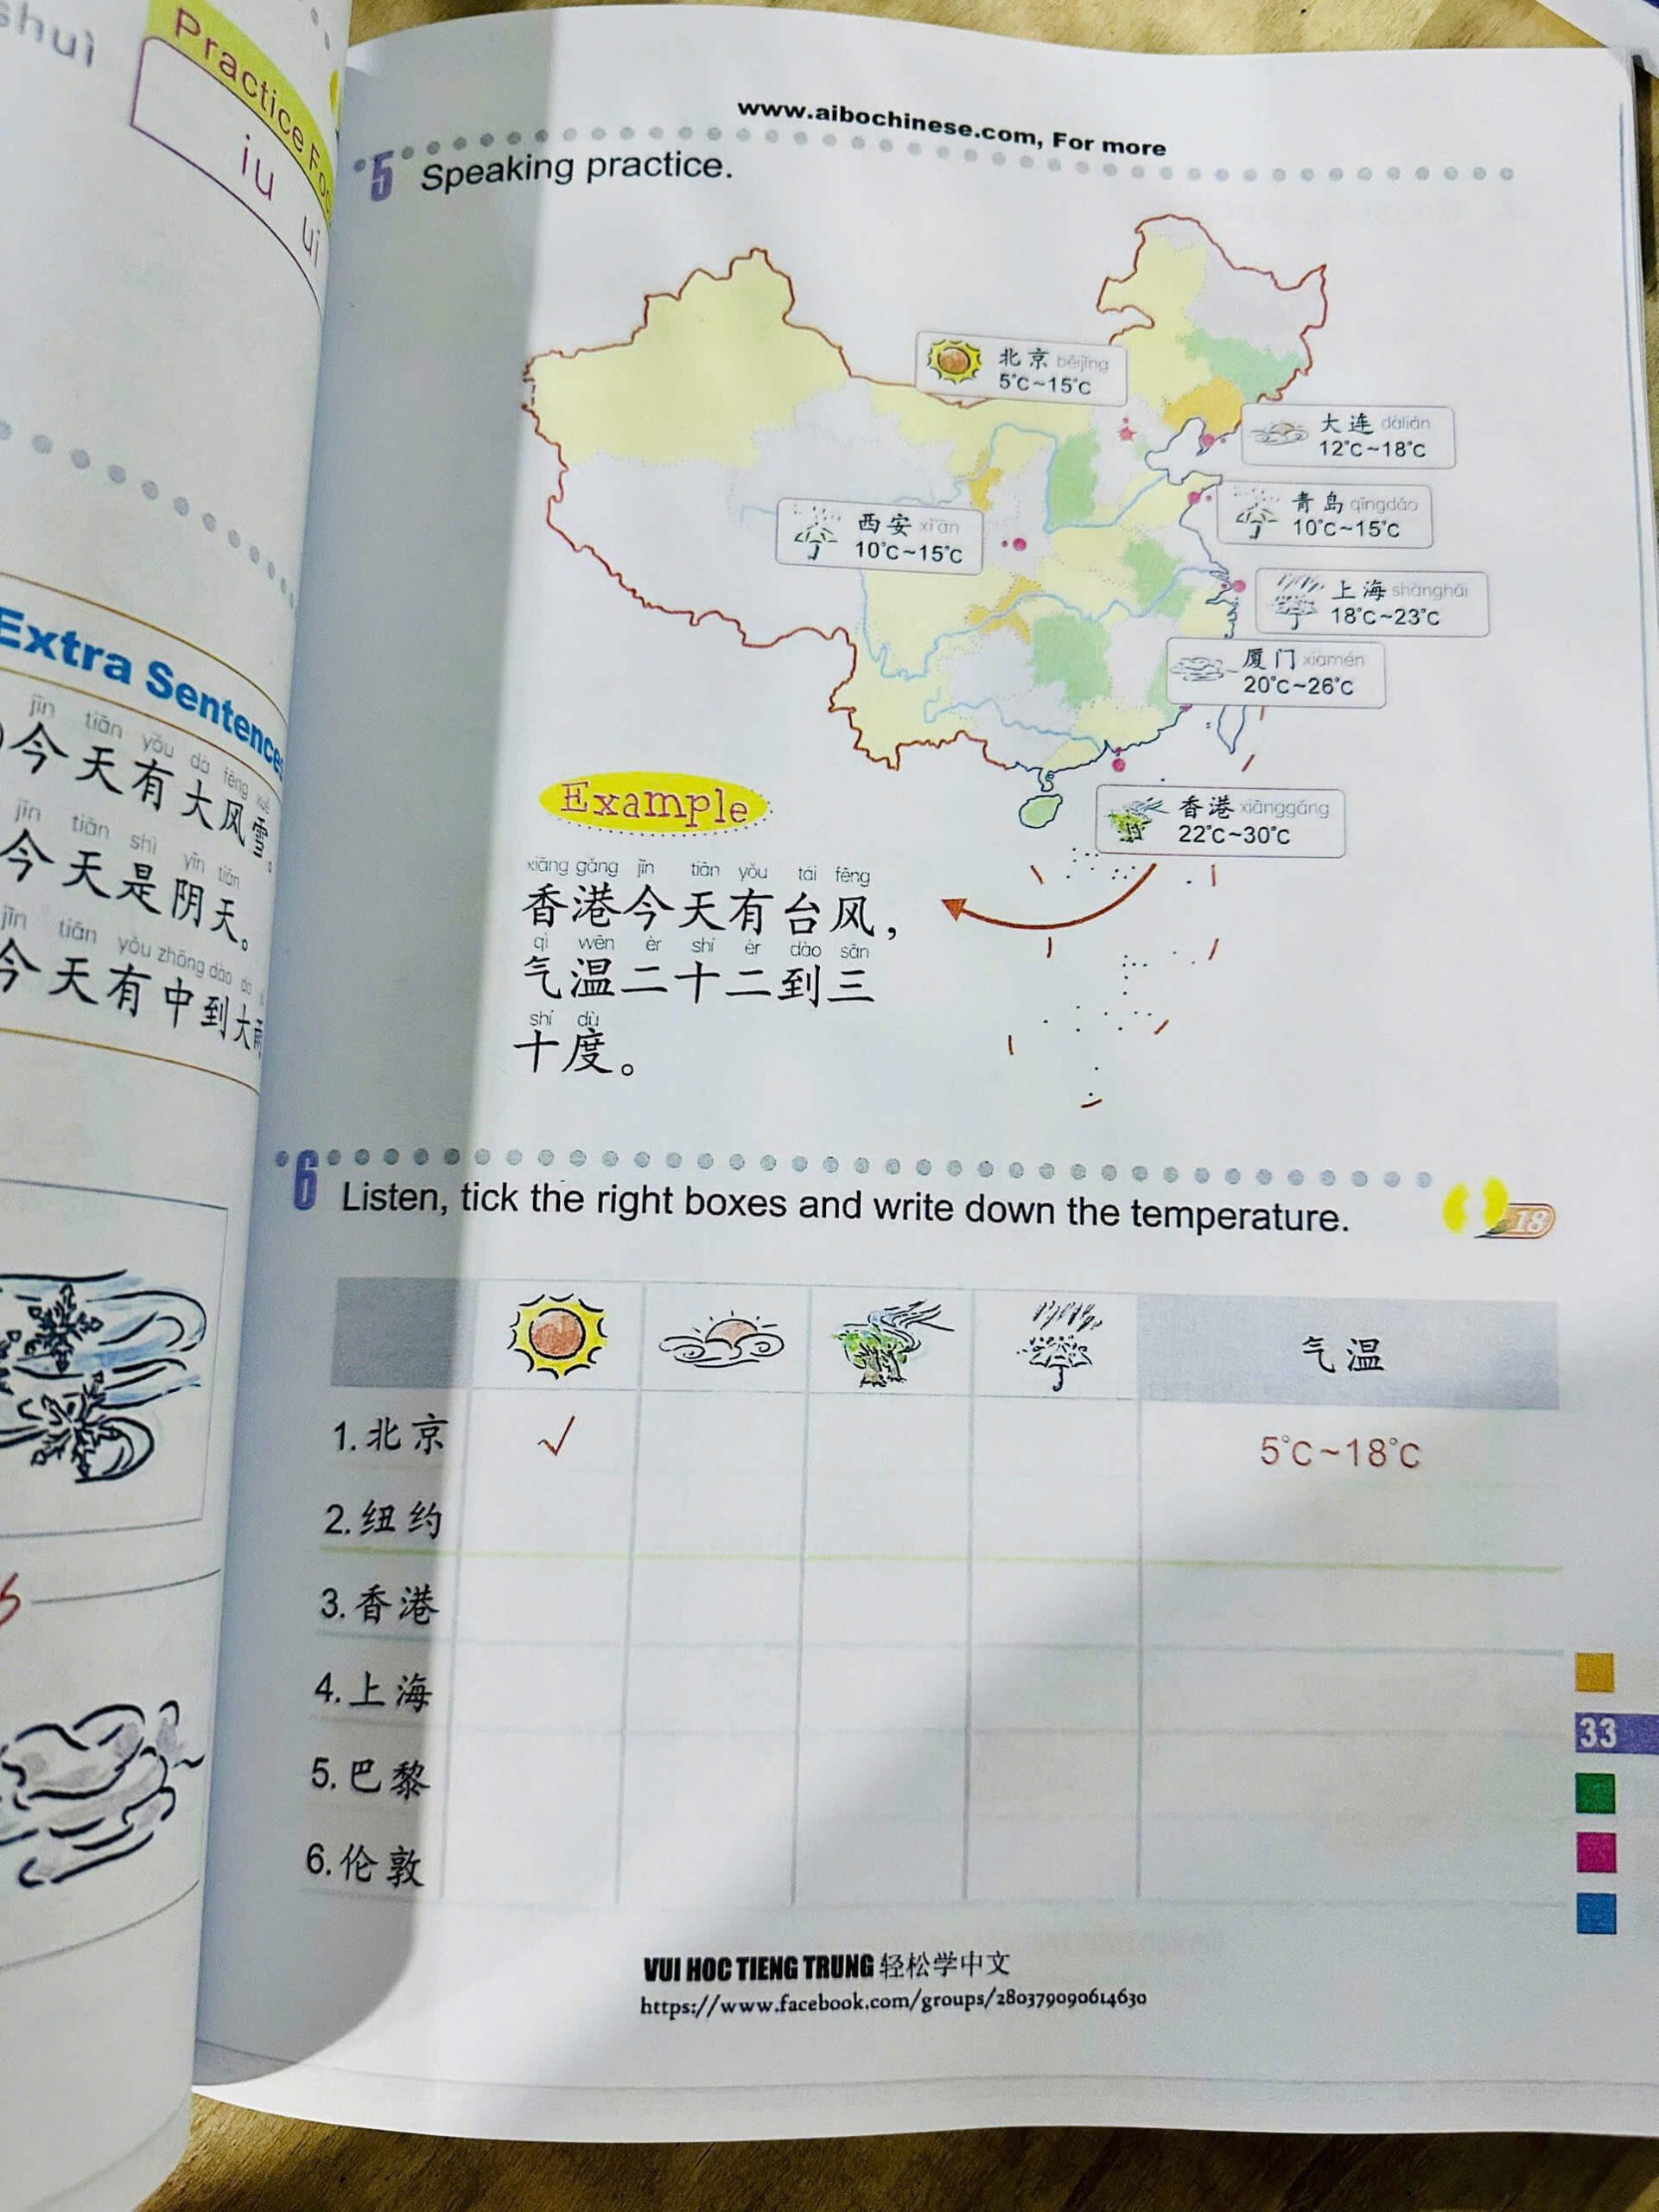 shuì
Practice Fo
iu ui
Extra Sentence
jīn tiān yǒu dà fēng xuě
今天有大风雪。
jīn tiān shì yīn tiān
今天是阴天。
jīn tiān yǒu zhōng dào dà
今天有中到大雨
www.aibochinese.com, For more
5 Speaking practice.
北京 běijīng
5℃~15℃
大连 dàlián
12℃~18℃
青岛 qīngdǎo
10℃~15℃
西安 xī'ān
10℃~15℃
上海 shànghǎi
18℃~23℃
厦门 xiàmén
20℃~26℃
香港 xiānggǎng
22℃~30℃
Example
xiāng gǎng jīn tiān yǒu tái fēng
香港今天有台风，
qì wēn èr shí èr dào sān
气温二十二到三
shí dù
十度。
6 Listen, tick the right boxes and write down the temperature.
18
气温
1.北京 √ 5℃~18℃
2.纽约
3.香港
4.上海
5.巴黎
6.伦敦
33
VUI HOC TIENG TRUNG 轻松学中文
https://www.facebook.com/groups/280379090614630